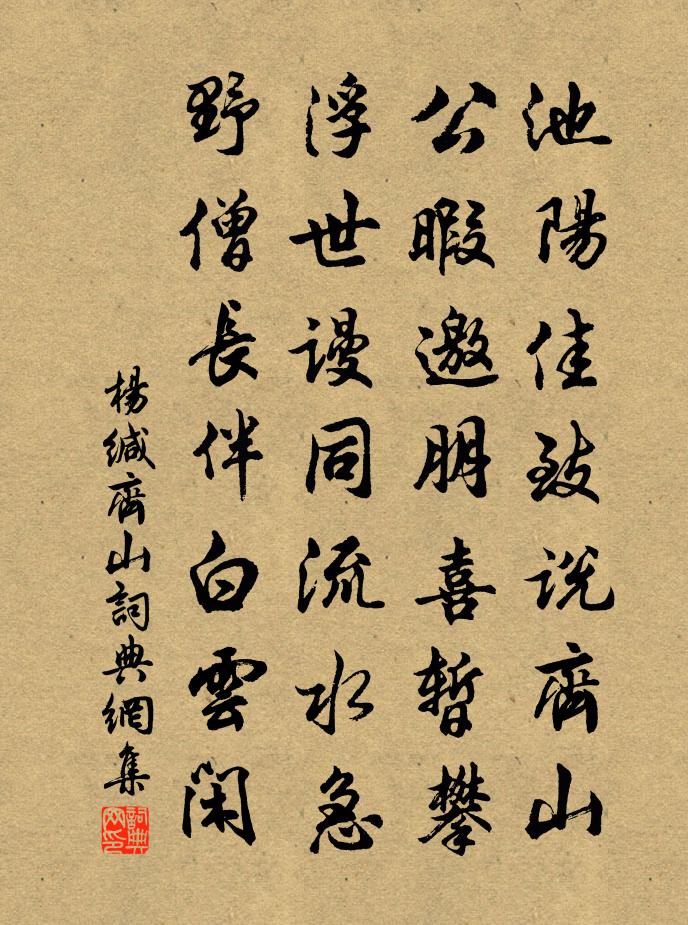 池陽佳致説齊山
公暇邀朋喜暫攀
浮世謾同流水急
野僧長伴白雲閑
楊緘齊山詞典網集
詞典网印